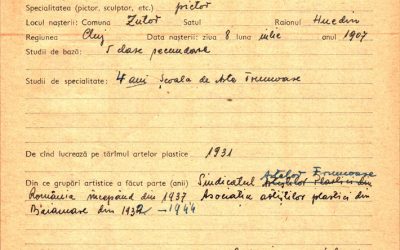 Specialitatea (pictor, sculptor, etc.) pictor
Locul nașterii: Comuna Zutor Satul Raionul Huedin
Regiunea Cluj Data nașterii: ziua 8 luna iulie anul 1907
Studii de bază: 5 clase secundare
Studii de specialitate: 4 ani Școala de Arte Frumoase
De cînd lucrează pe tărîmul artelor plastice 1931
Artelor Frumoase
Din ce grupări artistice a făcut parte (anii) Sindicatul Artiștilor Plastici din
România începînd din 1937 Asociația artiștilor plastici din
Baiamare din 1932 - 1944